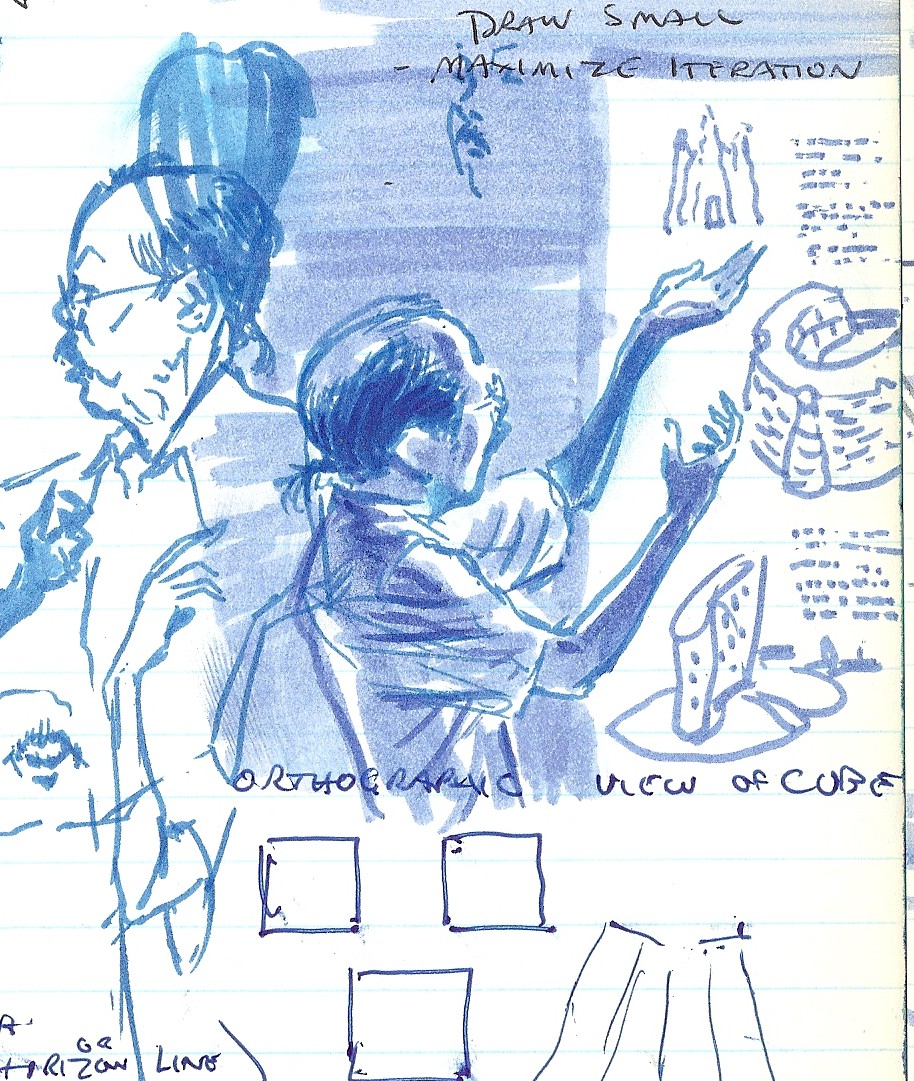 DRAW SMALL
- MAXIMIZE ITERATION
ORTHOGRAPHIC VIEW OF CUBE
OR
HORIZON LINE